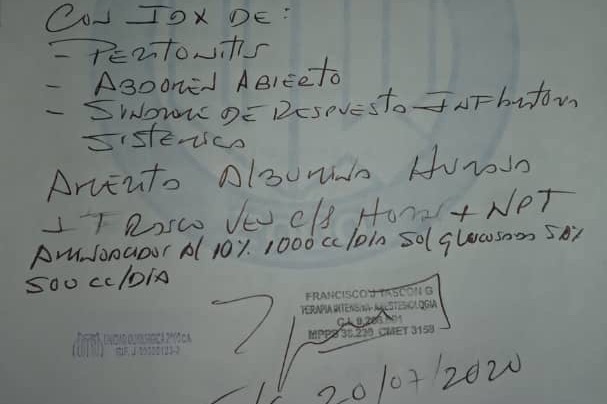 CON IDX DE:
- PERITONITIS
- ABDOMEN ABIERTO
- SINDROME DE RESPUESTA INFLMATORIA
SISTEMICA
AMERITA ALBUMINA HUMANA
1 FRASCO VEV C/8 HORAS + NPT
AMINOACIDOS AL 10% 1000 CC/DIA SOL GLUCOSADA 50%
500 CC/DIA
FRANCISCO J TASCON G
TERAPIA INTENSIVA ANESTESIOLOGIA
MPPS 38.239 CMET 3158
UNIDAD QUIRURGICA
RIF. J
20/07/2020